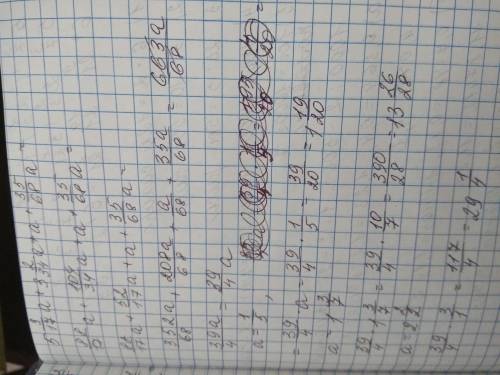 5 3/17 a + 3 2/34 a + a + 35/68 a =
88/17 a + 104/34 a + a + 35/68 a =
88/17 a + 52/17 a + a + 35/68 a =
352a/68 + 208a/68 + a/68 + 35a/68 = 663a/68
39a/4 = 39/4 a
a = 1/5,
= 39/4 · a = 39/4 · 1/5 = 39/20 = 1 19/20
a = 1 3/7
39/4 · 1 3/7 = 39/4 · 10/7 = 390/28 = 13 26/28
39/4 · 3/1 = 117/4 = 29 1/4